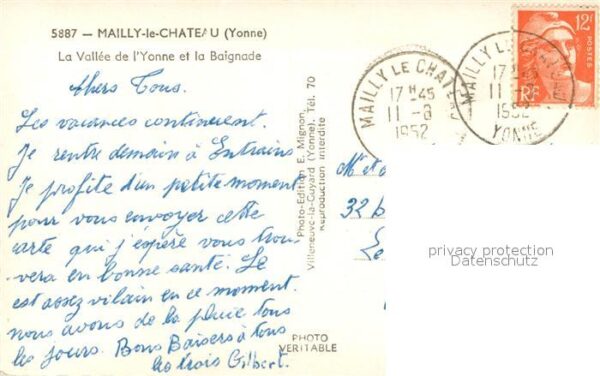 5887 — MAILLY-le-CHATEAU (Yonne)
La Vallée de l'Yonne et la Baignade
Chers Tous.
Les vacances continuent.
Je rentre demain à Entrains
Je profite d'un petite moment
pour vous envoyer cette
carte qui j'espère vous trou-
vera en bonne santé. Le
est assez vilain en ce moment.
nous avons de la pluie tous
les jours. Bons Baisers à tous
les trois Gilbert.
PHOTO
VERITABLE
Photo-Edition E. Mignon
Villeneuve-la-Guyard (Yonne). Tél. 70
Reproduction interdite
MAILLY LE CHATEAU
17H45
11-8
1952
MAILLY LE CHATEAU
17H45
11-8
1952
YONNE
12F
POSTES
RF
Mr et
32
privacy protection
Datenschutz